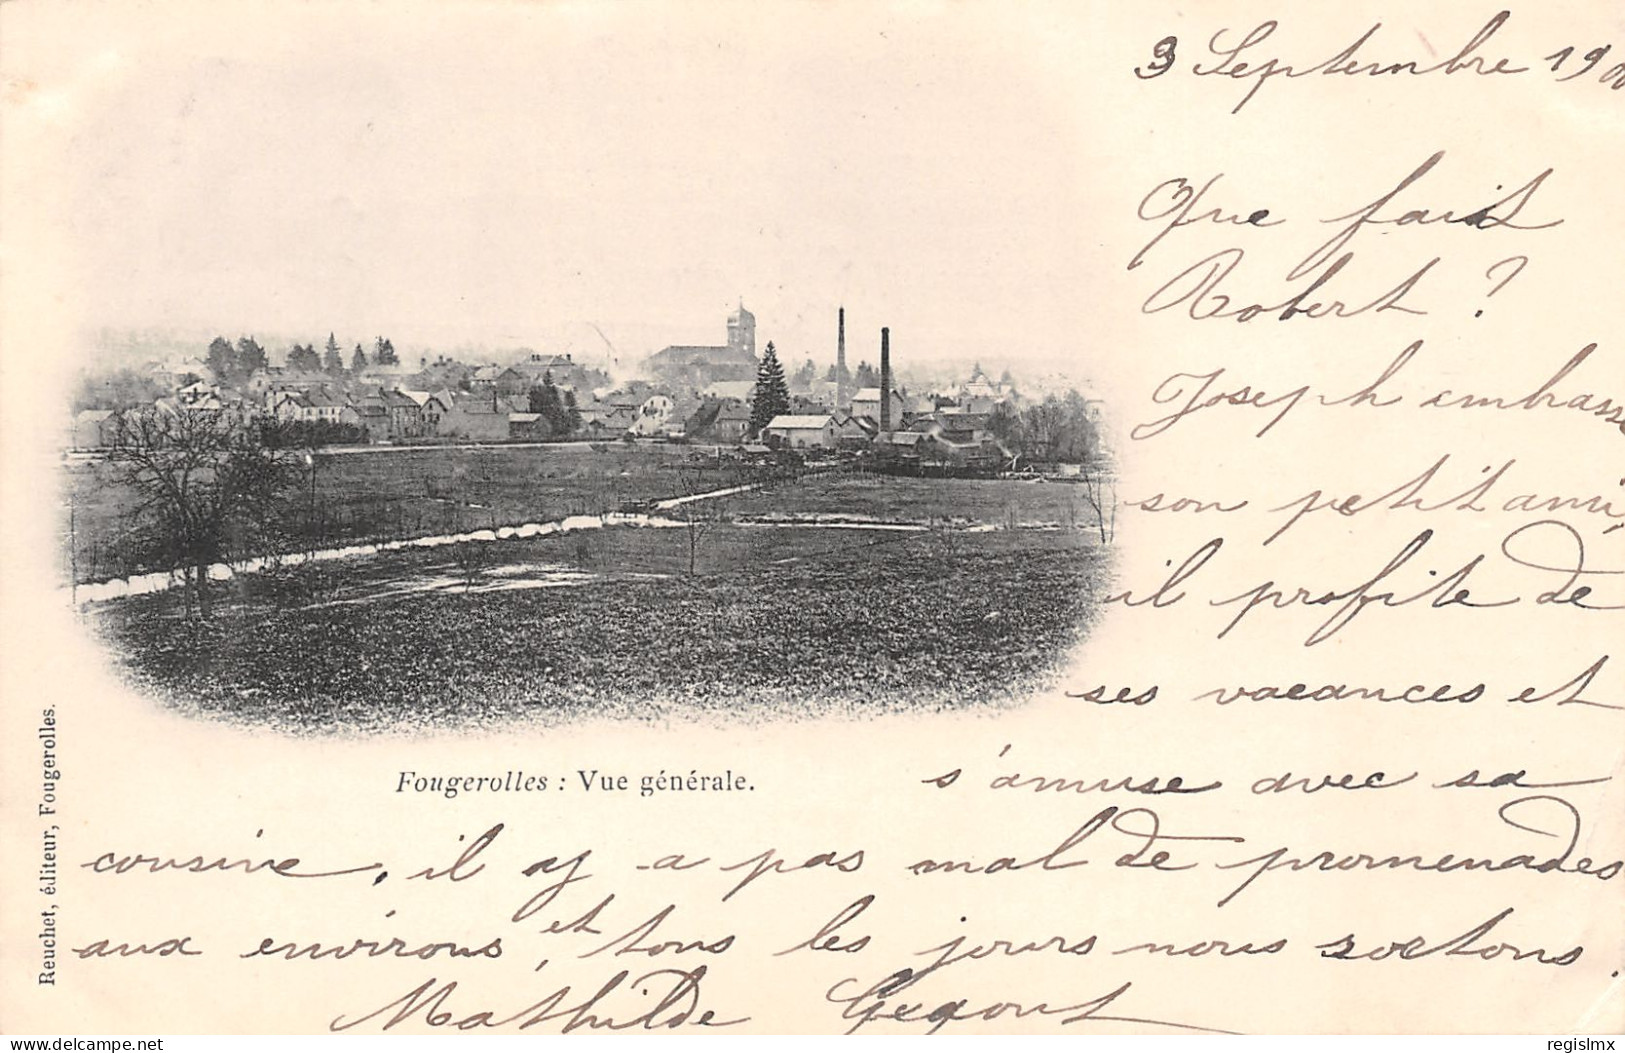 3 Septembre 1900
Que fait
Robert ?
Joseph embrasse
son petit ami,
il profite de
ses vacances et
s'amuse avec sa
Fougerolles : Vue générale.
cousine, il y a pas mal de promenades
aux environs, et tous les jours nous sortons.
Mathilde
Reuchet, éditeur, Fougerolles.
delcampe.net
regislmx